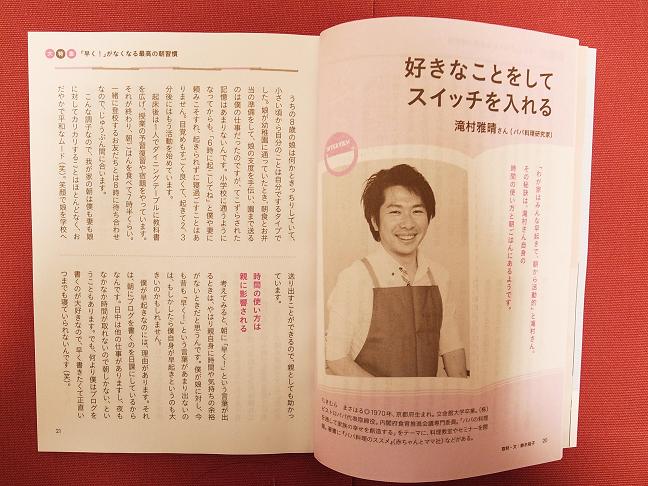 好きなことをして
スイッチを入れる
滝村雅晴さん（パパ料理研究家）
INTERVIEW
「わが家はみんな早起きで、朝から活動的」と滝村さん。
その秘訣は、滝村さん自身の
時間の使い方と朝ごはんにあるようです。
たきむら　まさはる◎1970年、京都府生まれ。立命館大学卒業。（株）
ビストロパパ代表取締役。内閣府食育推進会議専門委員。「パパの料理
を通して家族の幸せを創造する」をテーマに、料理教室やセミナーを開
催。著書に『パパ料理のススメ』（赤ちゃんとママ社）などがある。
20
大特集 「早く！」がなくなる最高の朝習慣
うちの8歳の娘は何かときっちりしていて、
小さい頃から自分のことは自分でするタイプで
した。娘が幼稚園に通っていたとき、朝食とお弁
当の準備をして、娘の支度を手伝い、園まで送る
のは僕の仕事だったのですが、てこずらされた
記憶はあまりないんです。小学校に通うように
なってからも、「6時に起こしてね」と僕や妻に
頼みこそすれ、起きられずに寝過ごすことはあ
りません。目覚めもすごく良くて、起きて2、3
分後にはもう活動を始めています。
起床後は1人でダイニングテーブルに教科書
を広げ、授業の予習復習や宿題をやっています。
それが終わり、朝ごはんを食べて7時半くらい。
一緒に登校するお友だちとは8時に待ち合わせ
なので、じゅうぶん間に合います。
こんな調子なので、我が家の朝は僕も妻も娘
に対してカリカリすることはほとんどなく、お
だやかで平和なムード（笑）。笑顔で娘を学校へ
送り出すことができるので、親としても助かっ
ています。
時間の使い方は
親に影響される
考えてみると、朝に「早く！」という言葉が出
るときは、やはり親自身に時間や気持ちの余裕
がないときだと思うんです。僕が娘に対し、今
も昔も「早く！」という言葉があまり出ないの
は、もしかしたら僕自身が早起きというのも大
きいのかもしれません。
僕が早起きなのには、理由があります。それ
は、朝にブログを書くのを日課にしているから
なんです。日中は他の仕事がありますし、夜も
なかなか時間が取れないので朝しかない、とい
うこともあります。でも、何より僕はブログを
書くのが大好きなので、早く書きたくて正直い
つまでも寝ていられないんです（笑）。
21